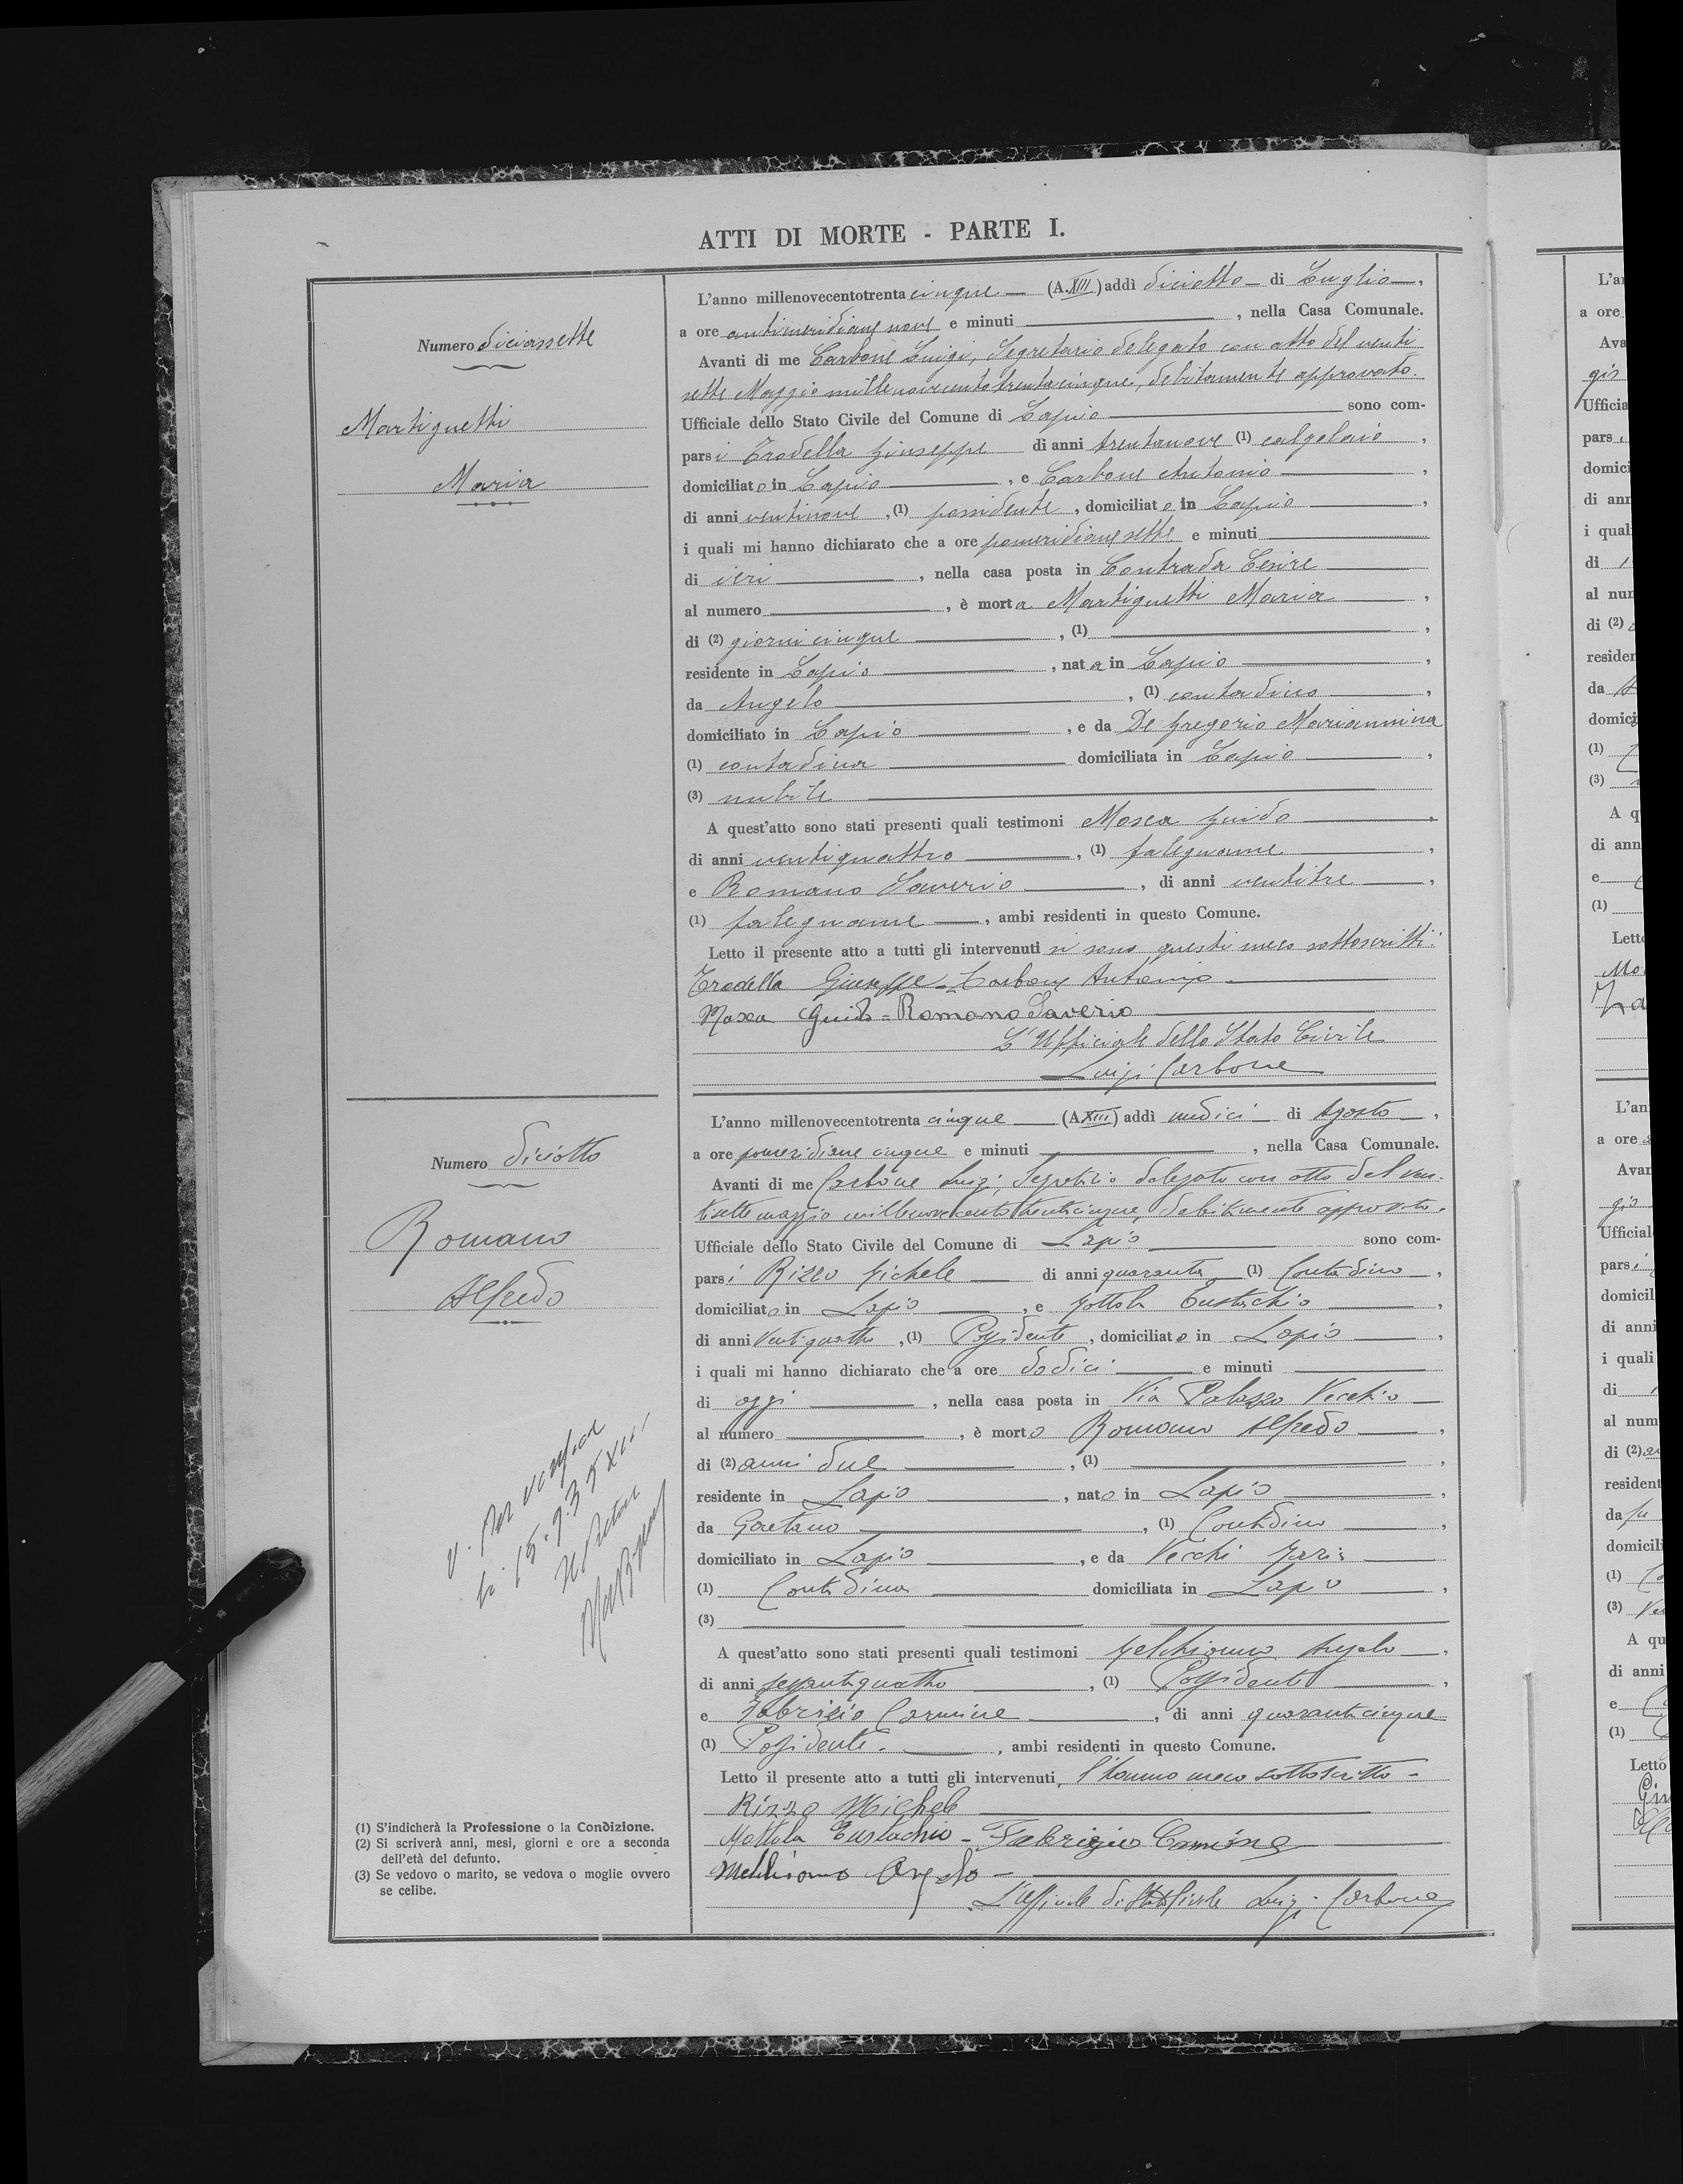 ATTI DI MORTE - PARTE I.
Numero diciassette
Martignetti
Maria
L'anno millenovecentotrenta cinque (A. XIII) addì diciotto di Luglio,
a ore antimeridiane nove e minuti , nella Casa Comunale.
Avanti di me Carbone Luigi, Segretario delegato con atto del venti
sette Maggio millenovecentotrentacinque, debitamente approvato.
Ufficiale dello Stato Civile del Comune di Lapio sono com-
parsi Trodella Giuseppe di anni trentanove (1) calzolaio,
domiciliato in Lapio, e Carbone Antonio,
di anni ventinove, (1) possidente, domiciliato in Lapio,
i quali mi hanno dichiarato che a ore pomeridiane sette e minuti
di ieri, nella casa posta in Contrada Cesine
al numero , è morta Martignetti Maria,
di (2) giorni cinque, (1) ,
residente in Lapio, nata in Lapio,
da Angelo, (1) contadino,
domiciliato in Lapio, e da De Gregorio Mariannina
(1) contadina domiciliata in Lapio,
(3) nubile
A quest'atto sono stati presenti quali testimoni Mosca Guido,
di anni ventiquattro, (1) falegname,
e Romano Saverio, di anni ventitre,
(1) falegname, ambi residenti in questo Comune.
Letto il presente atto a tutti gli intervenuti si sono questi meco sottoscritti:
Trodella Giuseppe - Carbone Antonio
Mosca Guido = Romano Saverio
L'Ufficiale dello Stato Civile
Luigi Carbone
Numero diciotto
Romano
Alfredo
L'anno millenovecentotrenta cinque (A. XIII) addì undici di Agosto,
a ore pomeridiane cinque e minuti , nella Casa Comunale.
Avanti di me Carbone Luigi, Segretario delegato con atto del ven-
tisette maggio millenovecentotrentacinque, debitamente approvato.
Ufficiale dello Stato Civile del Comune di Lapio sono com-
parsi Rizzo Michele di anni quaranta (1) Contadino,
domiciliato in Lapio, e Mottola Eustachio,
di anni Ventiquattro, (1) Possidente, domiciliato in Lapio,
i quali mi hanno dichiarato che a ore dodici e minuti
di oggi, nella casa posta in Via Palazzo Vecchio
al numero , è morto Romano Alfredo,
di (2) anni due, (1) ,
residente in Lapio, nato in Lapio,
da Gaetano, (1) Contadino,
domiciliato in Lapio, e da Vecchi Maria
(1) Contadina domiciliata in Lapio,
(3)
A quest'atto sono stati presenti quali testimoni Melchionno Angelo,
di anni sessantaquattro, (1) Possidente,
e Fabrizio Carmine, di anni quarantacinque
(1) Possidente, ambi residenti in questo Comune.
Letto il presente atto a tutti gli intervenuti, l'hanno meco sottoscritto -
Rizzo Michele
Mottola Eustachio - Fabrizio Carmine
Melchionno Angelo -
L'ufficiale di Stato Civile Luigi Carbone
V. Per verifica
li 15.9.35 XIII
Il Pretore
(1) S'indicherà la Professione o la Condizione.
(2) Si scriverà anni, mesi, giorni e ore a seconda
dell'età del defunto.
(3) Se vedovo o marito, se vedova o moglie ovvero
se celibe.